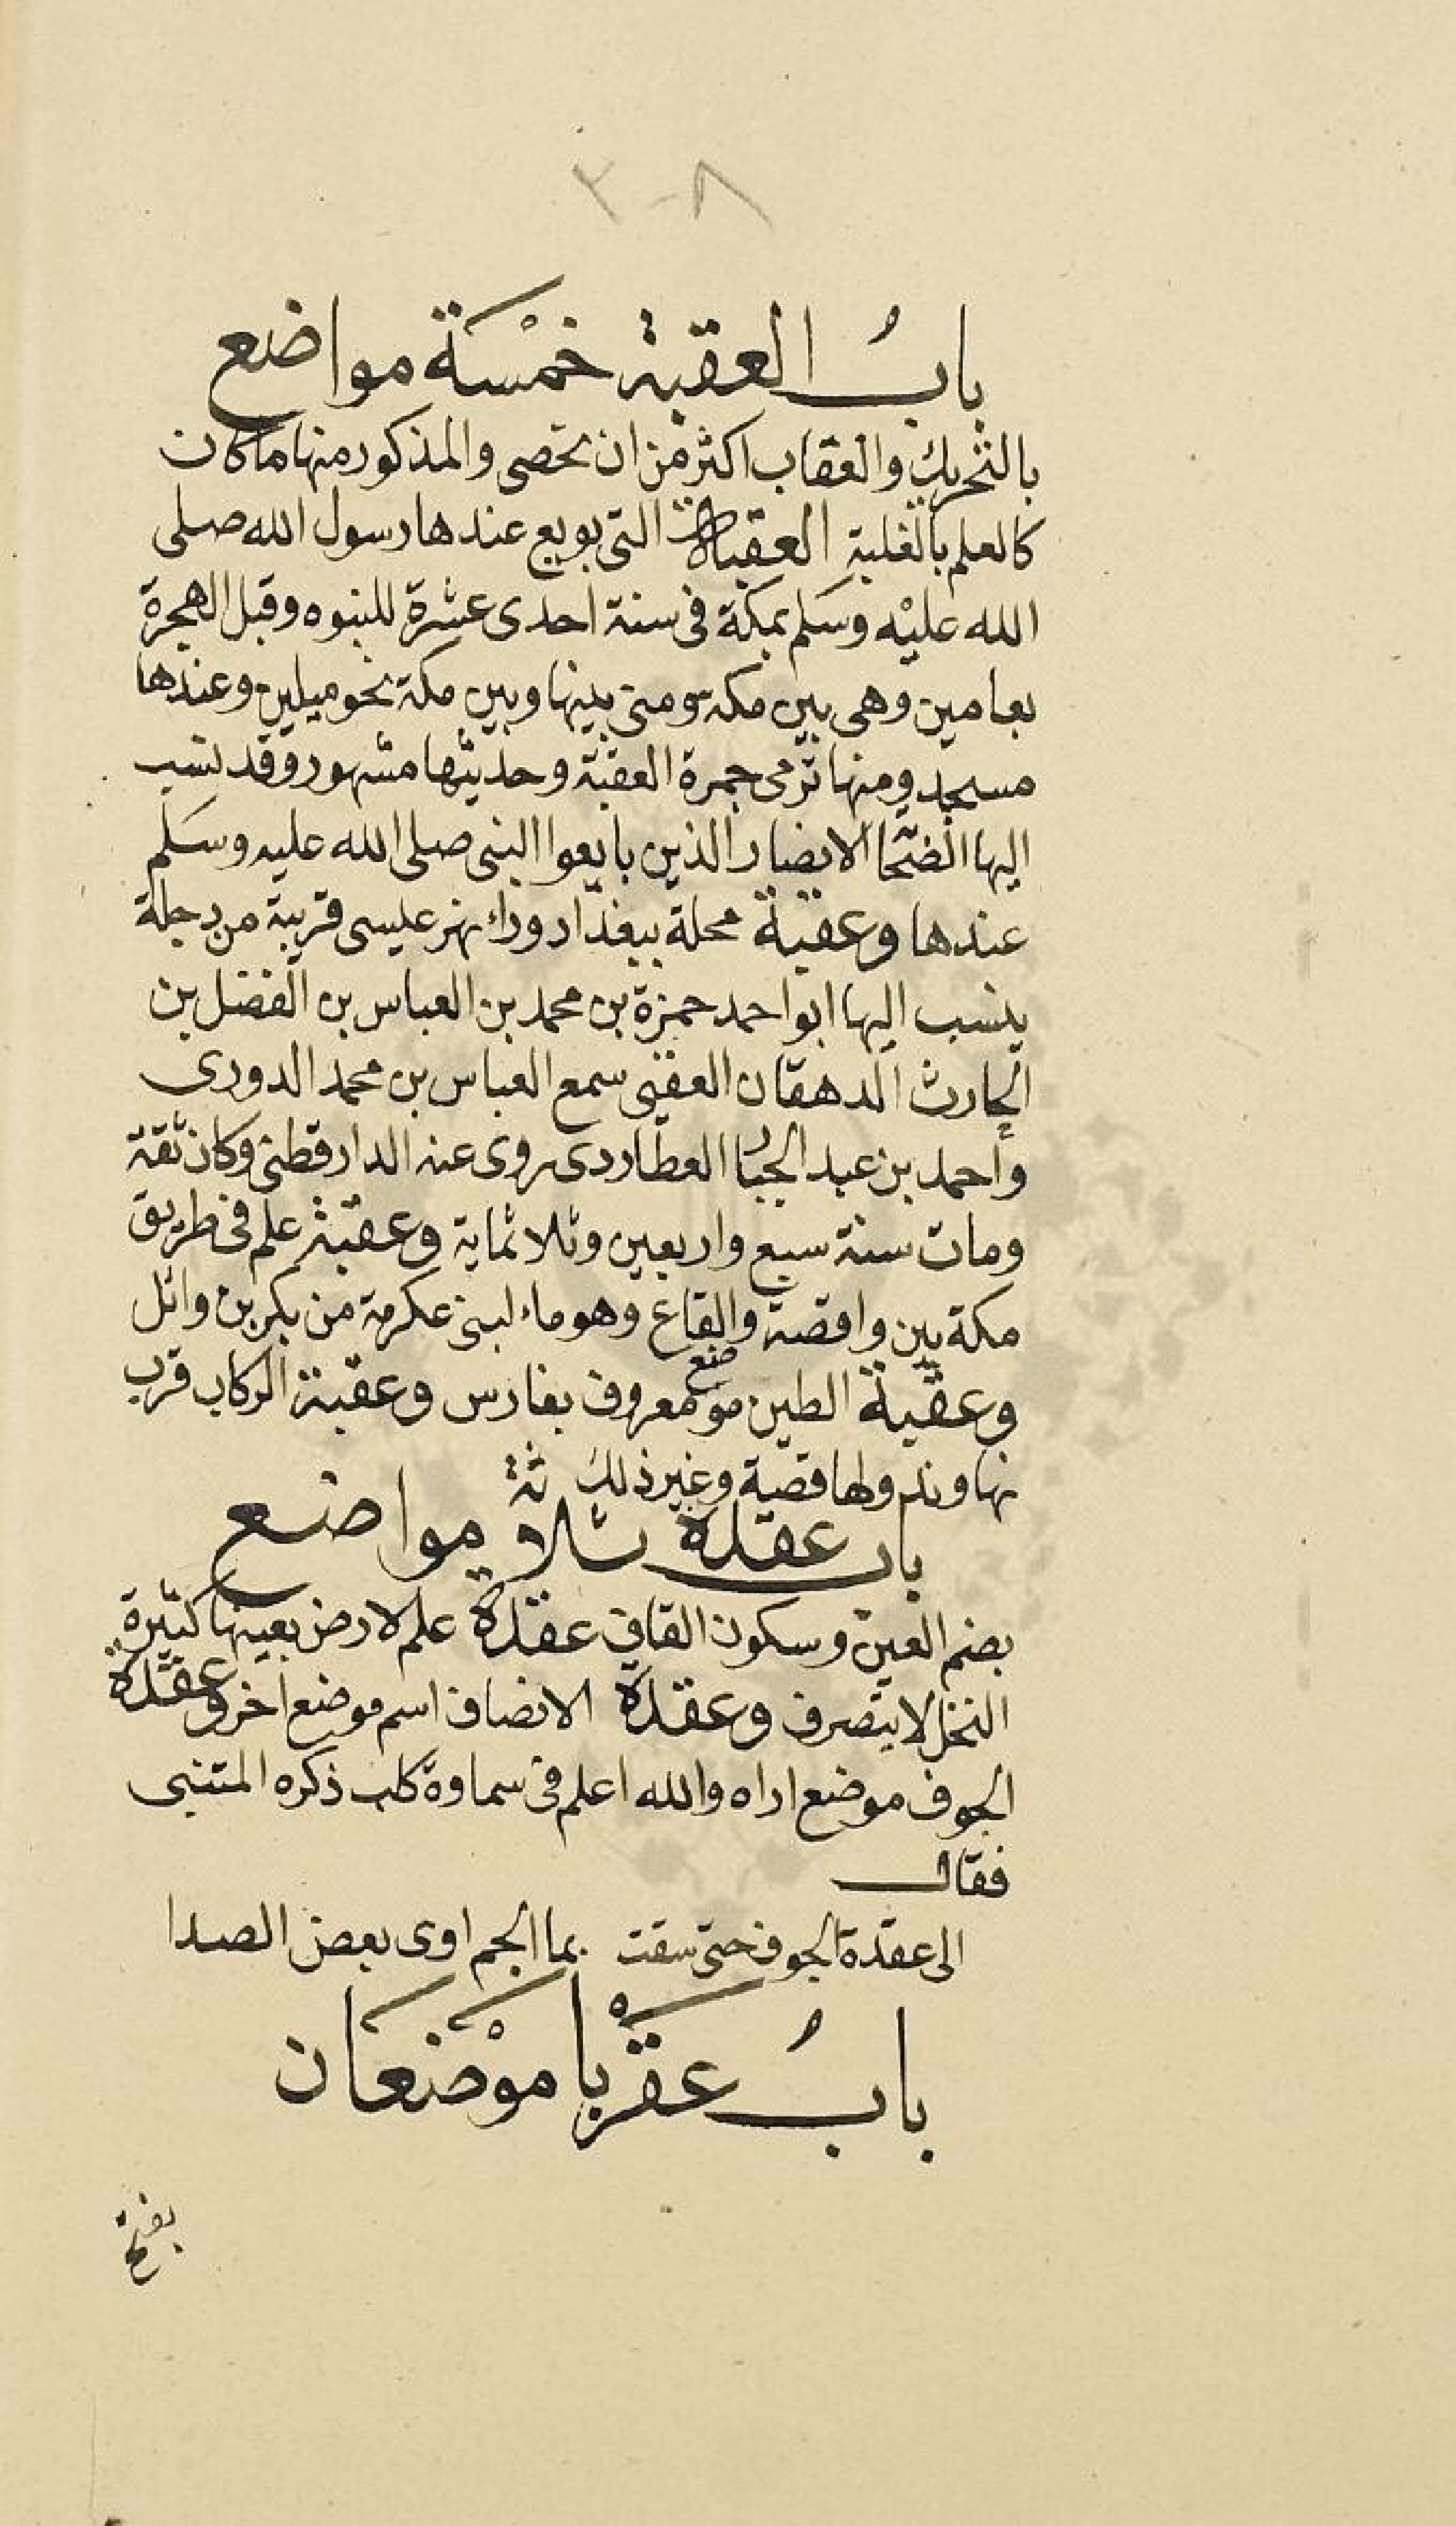 ٣٠٨
بابُ العقبة خمْسَة مواضع
بالتحريك والعقاب اكثر من ان تحصى والمذكور منها ما كان
كالعلم بالغلبة العقبة التى بويع عندها رسول الله صلى
الله عليْه وسَلم بمكة فى سنة احدى عشرة للنبوه وقبل الهجرة
بعامين وهى بين مكه ومنى بينها وبين مكة نحو ميلين وعندها
مسجد ومنها ترمى جمرة العقبة وحديثها مشهور وقد نسب
اليها الانصار الذين بايعوا النبى صلى الله عليه وسَلم
عندها وعقبة محلة ببغداد وراء نهر عيسى قريبة من دجلة
ينسب اليها ابو احمد حمزة بن محمد بن العباس بن الفضل بن
الحارث الدهقان العقبى سمع العباس بن محمد الدورى
وأحمد بن عبد الجبار العطاردى روى عنه الدارقطنى وكان ثقة
ومات سنة سبع واربعين وثلاثماية وعقبة علم فى طريق
مكة بين واقصة والقاع وهو ماء لبنى عكرمة من بكر بن وائل
وعقبة الطين موضع معروف بفارس وعقبة الركاب قرب
نهاوند ولها قصة وغير ذلك
باب عقدة ثلاثة مواضع
بضم العين وسكون القاف عقدة علم لارض بعينها كثيرة
النخل لا يتصرف وعقدة الانصاف اسم موضع اخر وعقدة
الجوف موضع اراه والله اعلم فى سماوة كلب ذكره المتنبى
فقال
الى عقدة الجوف حتى شقت بما الجم اوى بعض الصدا
بابُ عقْرَبا موْضعَان
بفتح